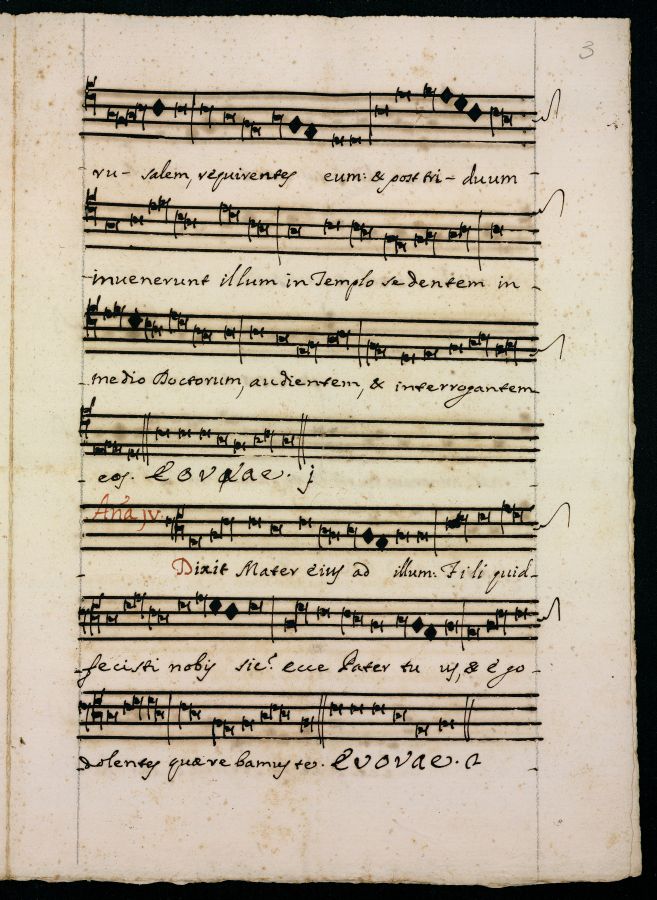 3
ru- salem, requirentes eum: & post tri- duum
inuenerunt illum in Templo sedentem in
medio Doctorum, audientem, & interrogantem
eos. EOVAE. j
Ana. jv.
Dixit Mater eius ad illum: Fili quid
fecisti nobis sic? ecce Pater tu us, & ego
dolentes quærebamus te. EVOVAE.